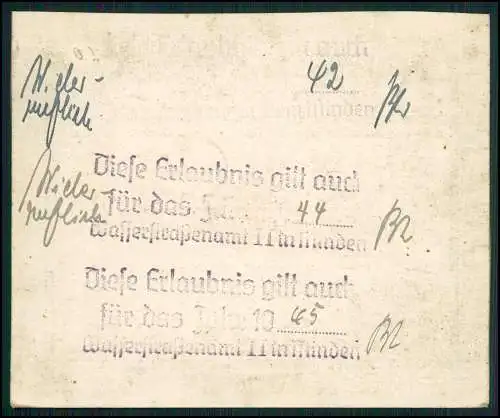 Wider-
ruflich
42
Minden
Wider
ruflich
Diese Erlaubnis gilt auch
für das Jahr 44
Wasserstraßenamt II in Minden
Diese Erlaubnis gilt auch
für das Jahr 19 45
Wasserstraßenamt II in Minden